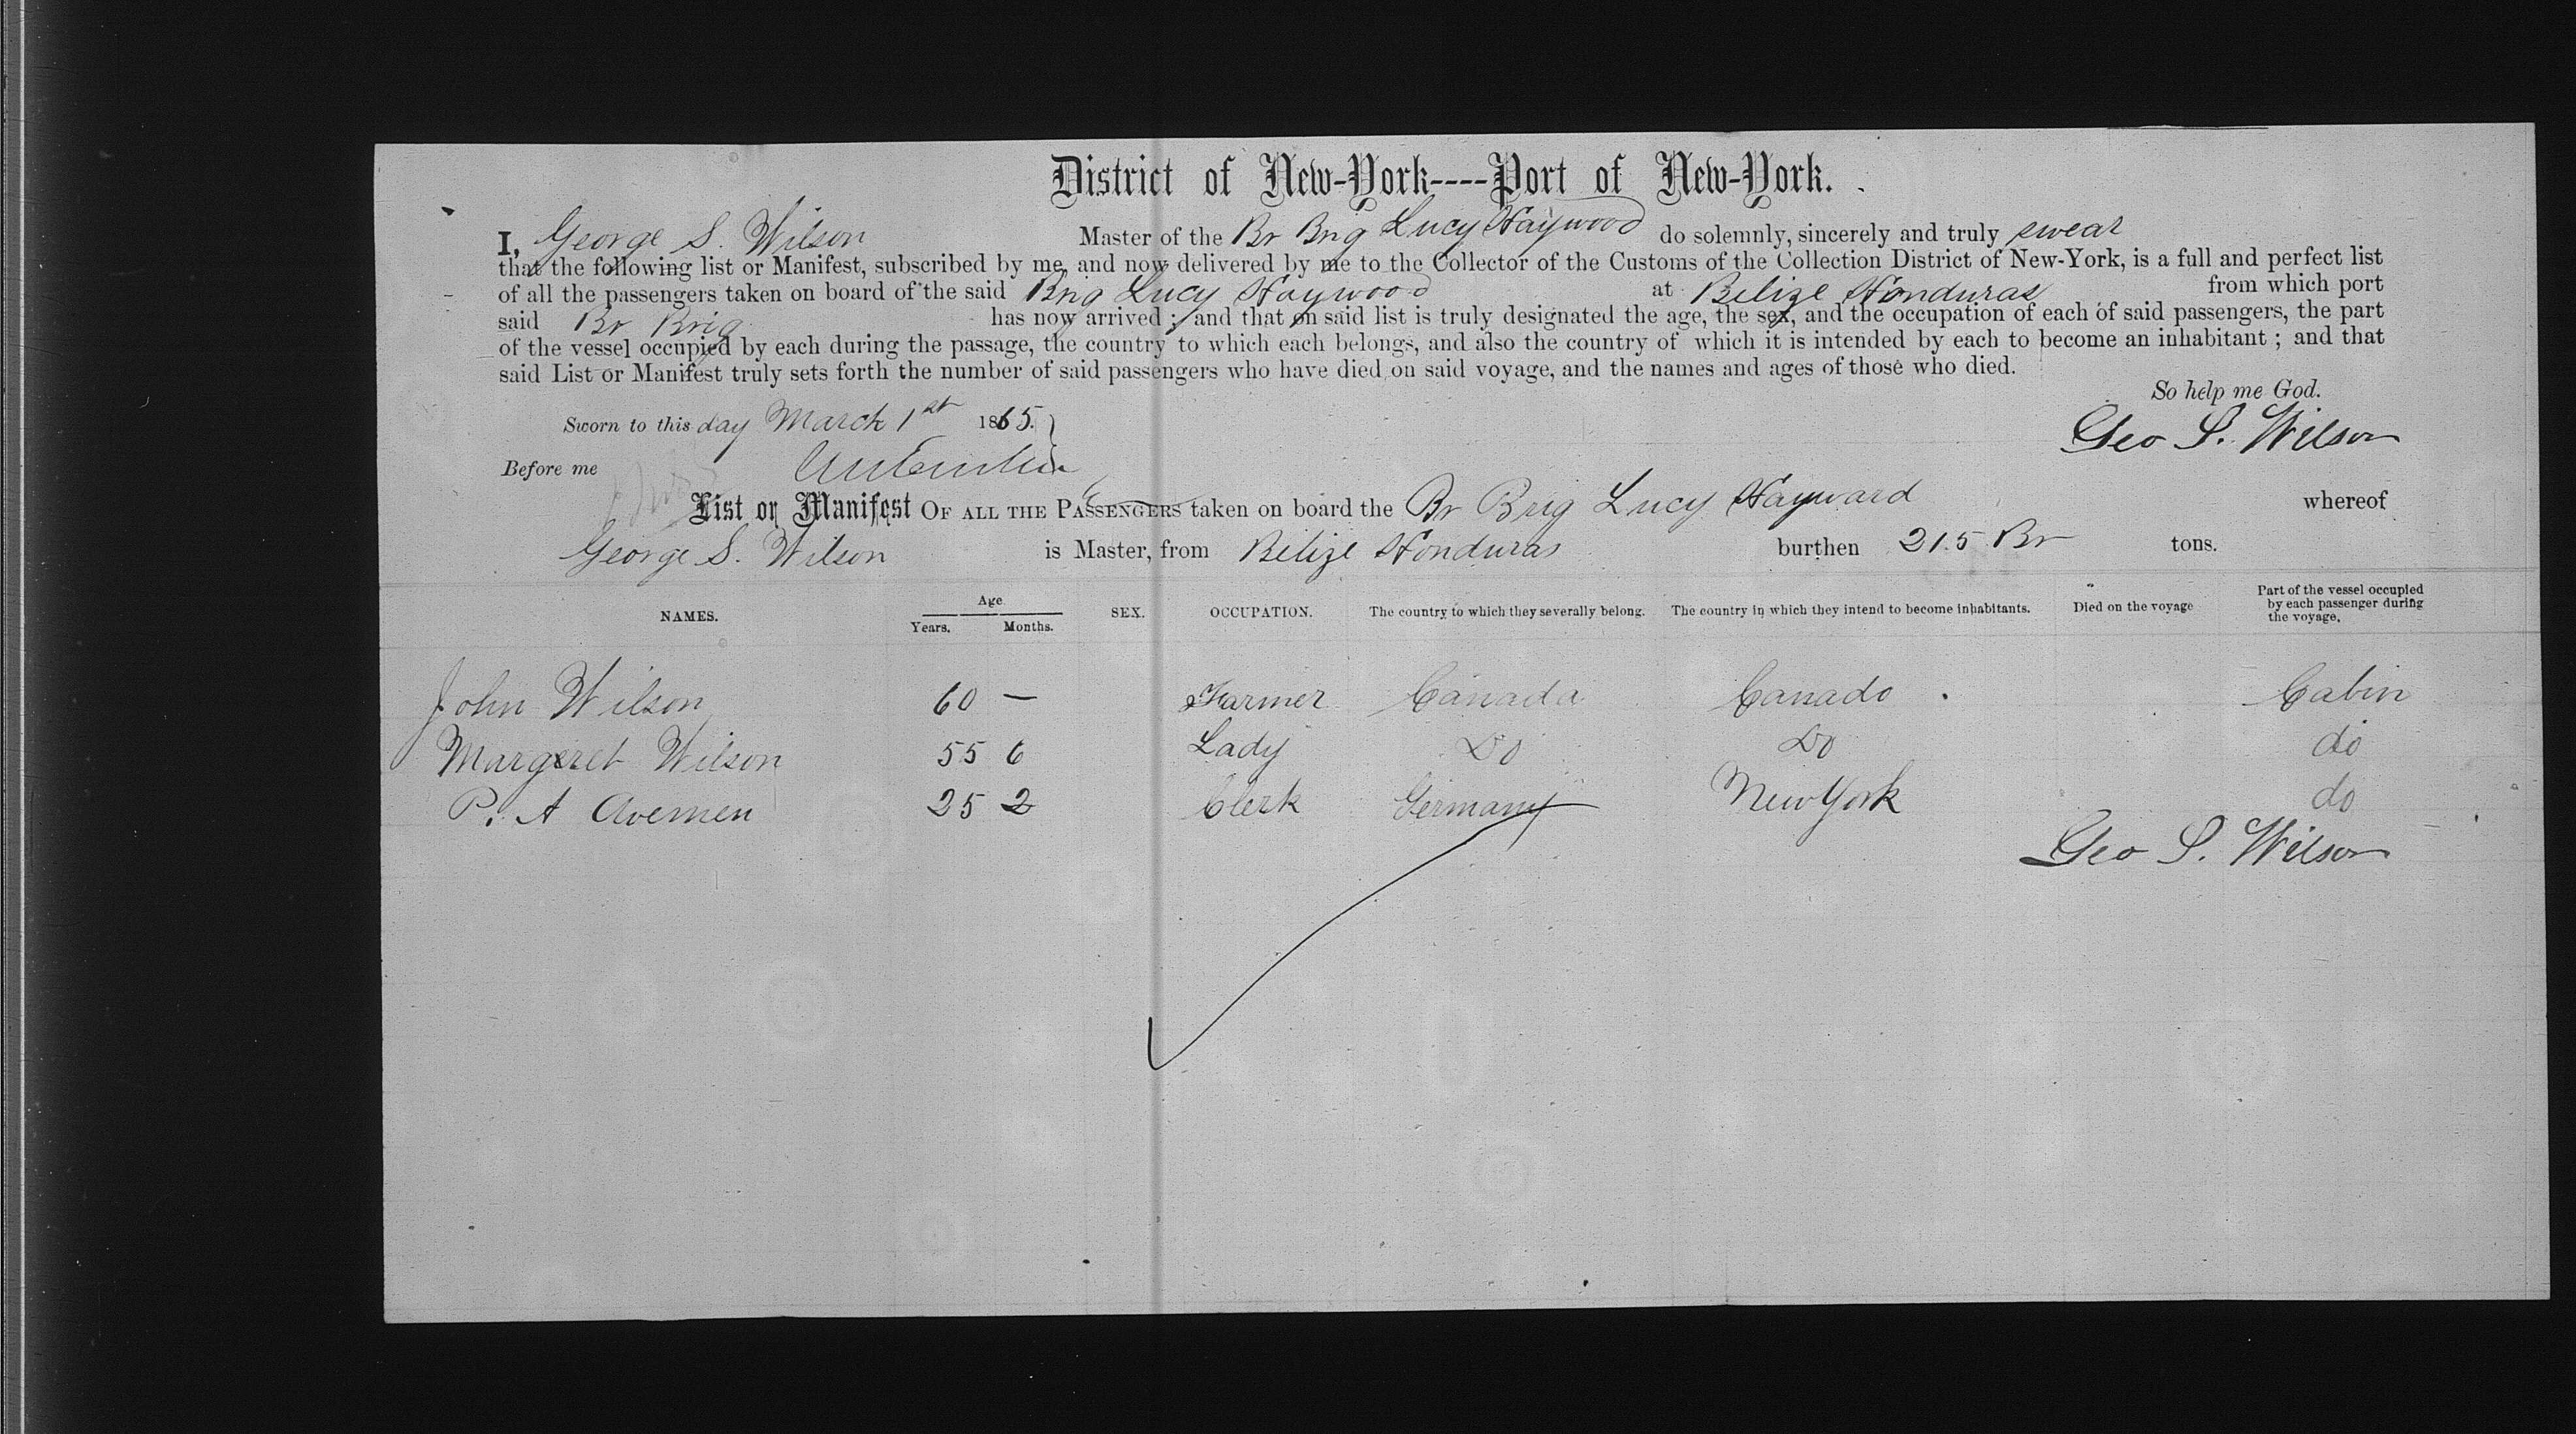 District of New-York----Port of New-York.
I, George S. Wilson Master of the Br Brig Lucy Haywood do solemnly, sincerely and truly swear
that the following list or Manifest, subscribed by me, and now delivered by me to the Collector of the Customs of the Collection District of New-York, is a full and perfect list
of all the passengers taken on board of the said Brig Lucy Haywood at Belize Honduras from which port
said Br Brig has now arrived ; and that on said list is truly designated the age, the sex, and the occupation of each of said passengers, the part
of the vessel occupied by each during the passage, the country to which each belongs, and also the country of which it is intended by each to become an inhabitant ; and that
said List or Manifest truly sets forth the number of said passengers who have died on said voyage, and the names and ages of those who died.
So help me God.
Sworn to this day March 1st 1865.
Geo S. Wilson
Before me
List or Manifest OF ALL THE PASSENGERS taken on board the Br Brig Lucy Hayward whereof
George S. Wilson is Master, from Belize Honduras burthen 215 Br tons.
NAMES. Age Years. Months. SEX. OCCUPATION. The country to which they severally belong. The country in which they intend to become inhabitants. Died on the voyage Part of the vessel occupied by each passenger during the voyage.
John Wilson 60 — Farmer Canada Canado Cabin
Margeret Wilson 55 6 Lady Do Do do
P. A Avemen 25 2 Clerk Germany New York do
Geo S. Wilson